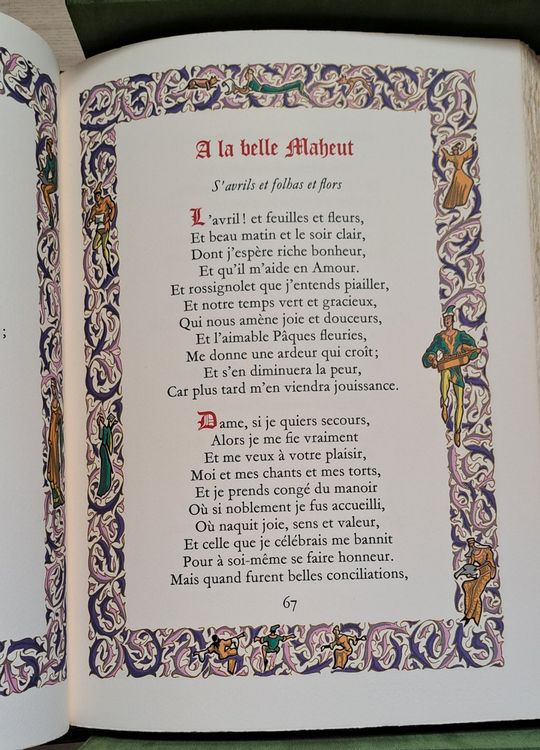 ;
A la belle Maheut
S'avrils et folhas et flors
L'avril ! et feuilles et fleurs,
Et beau matin et le soir clair,
Dont j'espère riche bonheur,
Et qu'il m'aide en Amour.
Et rossignolet que j'entends piailler,
Et notre temps vert et gracieux,
Qui nous amène joie et douceurs,
Et l'aimable Pâques fleuries,
Me donne une ardeur qui croit ;
Et s'en diminuera la peur,
Car plus tard m'en viendra jouissance.
Dame, si je quiers secours,
Alors je me fie vraiment
Et me veux à votre plaisir,
Moi et mes chants et mes torts,
Et je prends congé du manoir
Où si noblement je fus accueilli,
Où naquit joie, sens et valeur,
Et celle que je célébrais me bannit
Pour à soi-même se faire honneur.
Mais quand furent belles conciliations,
67